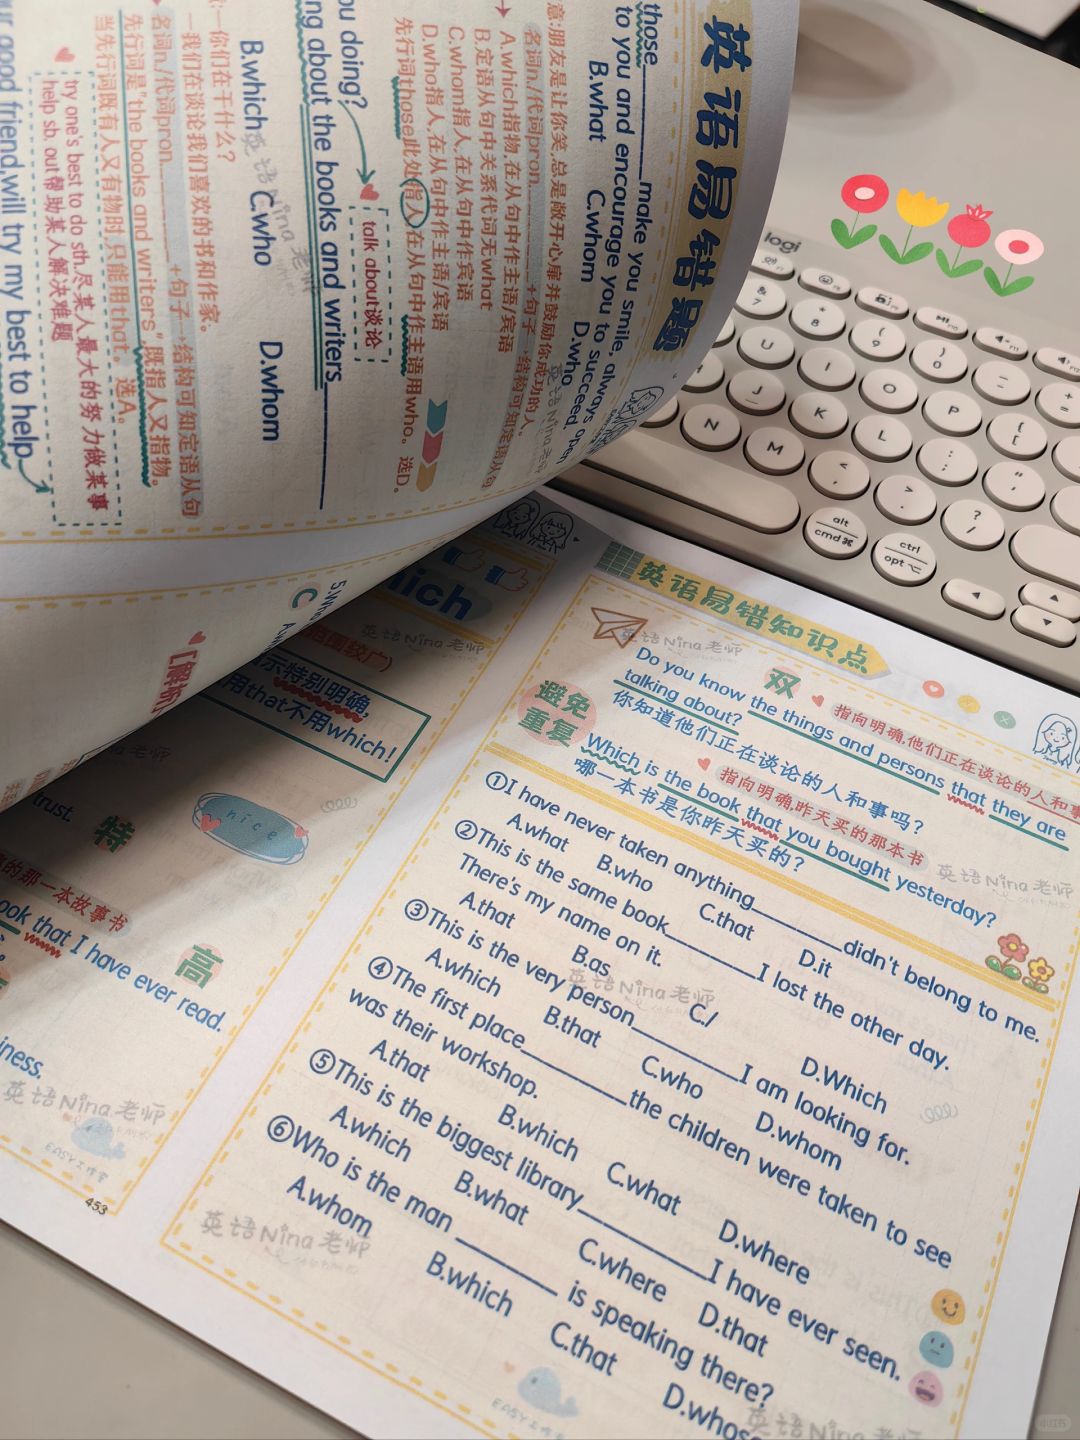 英语易错题
those________make you smile, always open
to you and encourage you to succeed.
B.what C.whom D.who
意:朋友是让你笑,总是敞开心扉并鼓励你成功的人。
名词n./代词pron.______+句子→结构可知定语从句
A.which指物,在从句中作主语/宾语
B.定语从句中关系代词无what
C.whom指人,在从句中作宾语
D.who指人,在从句中作主语/宾语
先行词those此处指人,在从句中作主语用who。选D。
ou doing?
talk about谈论
ng about the books and writers________
B.which C.who D.whom
一你们在干什么?
一我们在谈论我们喜欢的书和作家。
名词n./代词pron.______+句子→结构可知定语从句
先行词是"the books and writers",既指人又指物。
当先行词既有人又有物时,只能用that。选A。
try one's best to do sth.尽某人最大的努力做某事
help sb. out帮助某人解决难题
ur good friend,will try my best to help
5.Who
C
【解析
hich
范围较广
示特别明确,
用that不用which!
trust.
特
nice
的那一本故事书
ook that I have ever read.
高
iness.
英语Nina老师
EASY工作室
453
英语易错知识点
英语Nina老师
双
指向明确,他们正在谈论的人和事
Do you know the things and persons that they are
talking about?
你知道他们正在谈论的人和事吗?
避免
重复
指向明确,昨天买的那本书
Which is the book that you bought yesterday?
哪一本书是你昨天买的?
英语Nina老师
①I have never taken anything________didn't belong to me.
A.what B.who C.that D.it
②This is the same book________I lost the other day.
There's my name on it.
A.that B.as C./ D.Which
③This is the very person________I am looking for.
A.which B.that C.who D.whom
英语Nina老师
④The first place________the children were taken to see
was their workshop.
A.that B.which C.what D.where
⑤This is the biggest library________I have ever seen.
A.which B.what C.where D.that
⑥Who is the man ________ is speaking there?
A.whom B.which C.that D.whose
英语Nina老师
EASY工作室
英语Nina老师
logi
& 7
* 8
( 9
) 0
_ -
+ =
U
I
O
P
{ [
J
K
L
: ;
" '
N
M
< ,
> .
? /
alt
cmd ⌘
ctrl
opt ⌥
小红书